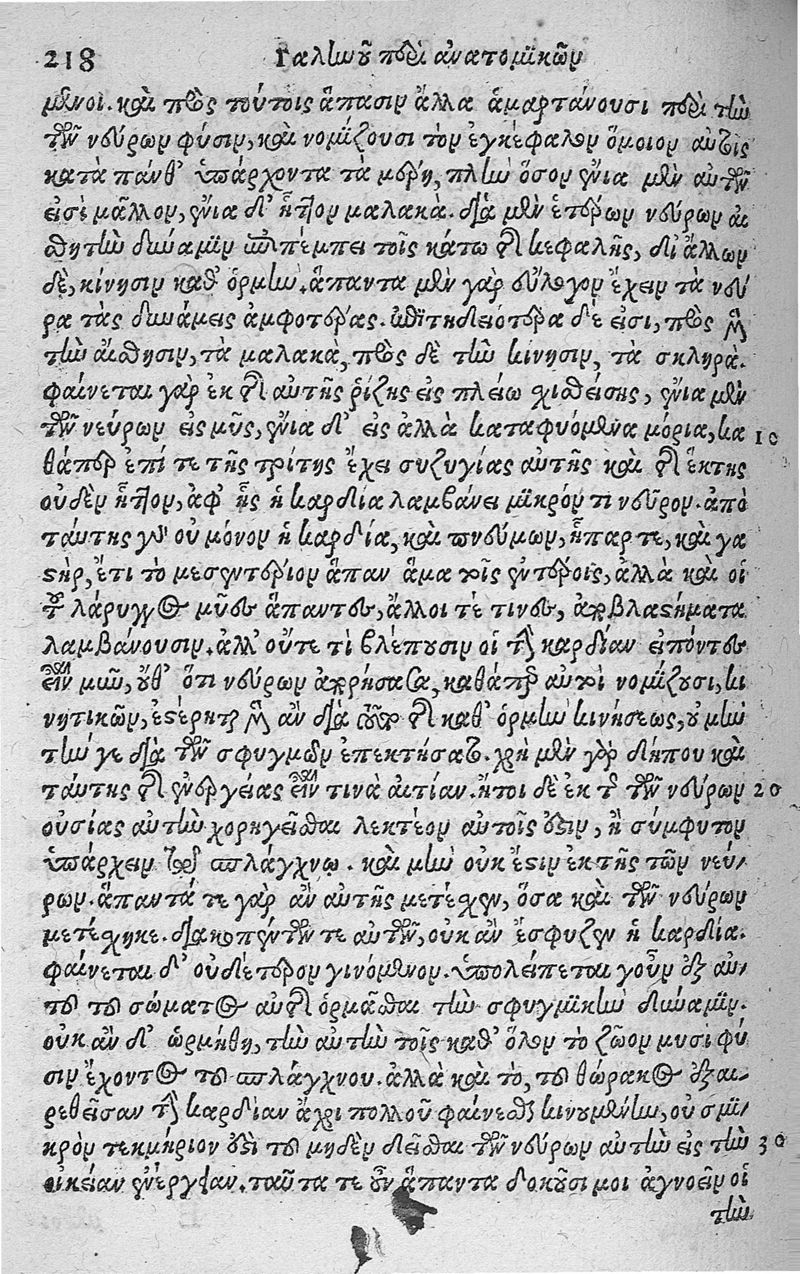 218 Γαλιωοῦ περὶ ἀνατομικῶν
μενοι. καὶ πρὸς τούτοις ἅπασιν ἄλλα ἁμαρτάνουσι περὶ τὴν
τῶν νεύρων φύσιν, καὶ νομίζουσι τὸν ἐγκέφαλον ὅμοιον αὐτοῖς
κατὰ πάνθ᾽ ὑπάρχοντα τὰ μέρη, πλὴν ὅσον ἔνια μὲν αὐτῶν
εἰσὶ μᾶλλον, ἔνια δ᾽ ἧττον μαλακὰ. διὰ μὲν ἑτέρων νεύρων αἰ
σθητὴν δύναμιν ἐπιπέμπει τοῖς κάτω τῆς κεφαλῆς, δι᾽ ἄλλων
δὲ, κίνησιν καθ᾽ ὁρμὴν. ἅπαντα μὲν γὰρ εὔλογον ἔχειν τὰ νεῦ
ρα τὰς δυνάμεις ἀμφοτέρας. ἐπιτηδειότερα δέ εἰσι, πρὸς μὲν
τὴν αἴσθησιν, τὰ μαλακὰ, πρὸς δὲ τὴν κίνησιν, τὰ σκληρὰ.
φαίνεται γὰρ ἐκ τῆς αὐτῆς ῥίζης εἰς πλείω χισθείσης, ἔνια μὲν
τῶν νεύρων εἰς μῦς, ἔνια δ᾽ εἰς ἀλλὰ καταφυόμενα μόρια, κα 10
θάπερ ἐπί τε τῆς τρίτης ἔχει συζυγίας αὐτῆς καὶ τῆς ἕκτης
οὐδὲν ἧττον, ἀφ᾽ ἧς ἡ καρδία λαμβάνει μικρόν τι νεῦρον. ἀπὸ
ταύτης γὰρ οὐ μόνον ἡ καρδία, καὶ πνεύμων, ἧπαρ τε, καὶ γα
στὴρ, ἔτι τὸ μεσεντέριον ἅπαν ἅμα τοῖς ἐντέροις, ἀλλὰ καὶ οἱ
τοῦ λάρυγγος μῦες ἅπαντες, ἄλλοι τέ τινες, ἀποβλαστήματα
λαμβάνουσιν. ἀλλ᾽ οὔτε τὶ βλέπουσιν οἱ τὴν καρδίαν εἰπόντες
εἶναι μῦν, οὔθ᾽ ὅτι νεύρων ἀποχρήσασα, καθάπερ αὐτοὶ νομίζουσι, κι
νητικῶν, ἐστέρηται μὲν ἂν διὰ τοῦτο τῆς καθ᾽ ὁρμὴν κινήσεως, οὐ μὴν
τήν γε διὰ τῶν σφυγμῶν ἐπεκτήσατο. χρὴ μὲν γὰρ δήπου καὶ
ταύτης τῆς ἐνεργείας εἶναι τινὰ αἰτίαν. ἤτοι δὲ ἐκ τῆς τῶν νεύρων 20
οὐσίας αὐτὴν χορηγεῖσθαι λεκτέον αὐτοῖς ἐστιν, ἢ σύμφυτον
ὑπάρχειν τῷ σπλάγχνῳ. καὶ μὴν οὐκ ἔστιν ἐκ τῆς τῶν νεύ-
ρων. ἅπαντά τε γὰρ ἂν αὐτῆς μετέχεν, ὅσα καὶ τῶν νεύρων
μετέχηκε. διακοπέντων τε αὐτῶν, οὐκ ἂν ἔσφυζεν ἡ καρδία.
φαίνεται δ᾽ οὐδέτερον γινόμενον. ὑπολείπεται γοῦν ἐξ αὐ-
τοῦ τοῦ σώματος αὐτῆς ὁρμᾶσθαι τὴν σφυγμικὴν δύναμιν.
οὐκ ἂν δ᾽ ὡρμήθη, τὴν αὐτὴν τοῖς καθ᾽ ὅλον τὸ ζῶον μυσὶ φύ
σιν ἔχοντος τοῦ σπλάγχνου. ἀλλὰ καὶ τὸ, τοῦ θώρακος ἐξαι-
ρεθεῖσαν τὴν καρδίαν ἄχρι πολλοῦ φαίνεσθαι κινουμένην, οὐ σμι-
κρὸν τεκμήριον ἐστὶ τοῦ μηδὲν δεῖσθαι τῶν νεύρων αὐτὴν εἰς τὴν 30
οἰκείαν ἐνέργειαν. ταῦτα τε οὖν ἅπαντα δοκοῦσι μοι ἀγνοεῖν οἱ
τὴν